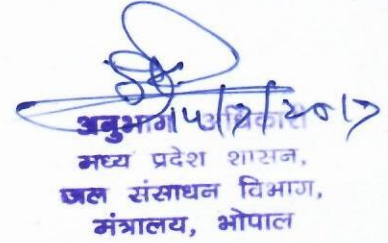 14/7/2017
अनुभाग अधिकारी
मध्य प्रदेश शासन,
जल संसाधन विभाग,
मंत्रालय, भोपाल